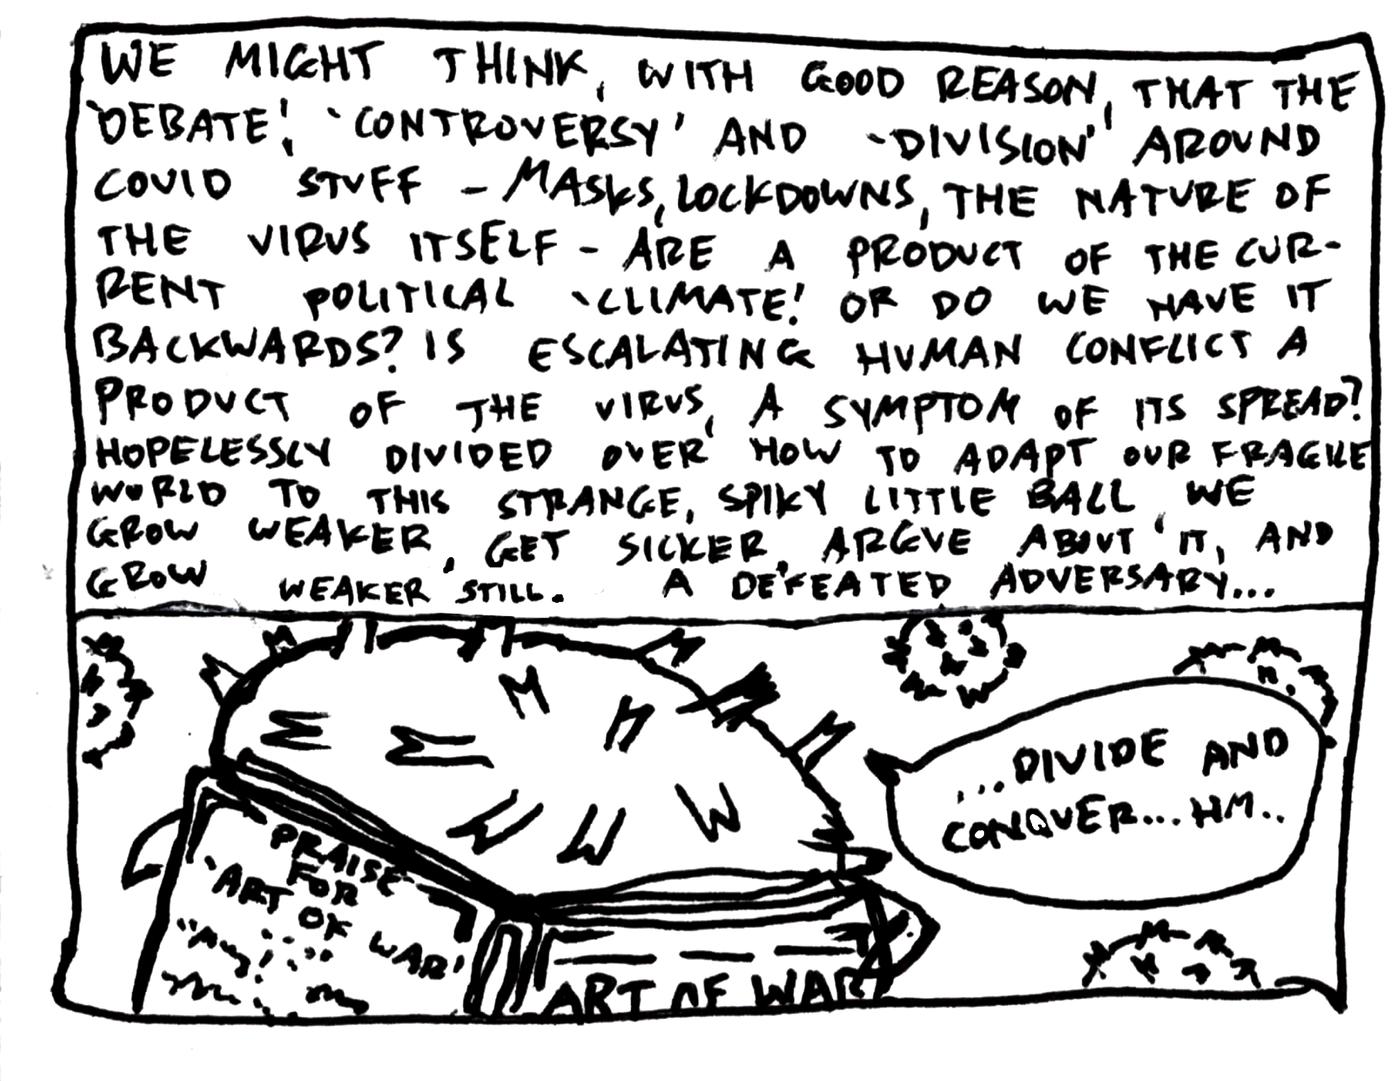 WE MIGHT THINK, WITH GOOD REASON, THAT THE
'DEBATE', 'CONTROVERSY' AND 'DIVISION' AROUND
COVID STUFF - MASKS, LOCKDOWNS, THE NATURE OF
THE VIRUS ITSELF - ARE A PRODUCT OF THE CUR-
RENT POLITICAL 'CLIMATE'. OR DO WE HAVE IT
BACKWARDS? IS ESCALATING HUMAN CONFLICT A
PRODUCT OF THE VIRUS, A SYMPTOM OF ITS SPREAD?
HOPELESSLY DIVIDED OVER HOW TO ADAPT OUR FRAGILE
WORLD TO THIS STRANGE, SPIKY LITTLE BALL WE
GROW WEAKER, GET SICKER, ARGUE ABOUT IT, AND
GROW WEAKER STILL. A DEFEATED ADVERSARY...
...DIVIDE AND
CONQUER... HM..
PRAISE
FOR
'ART OF WAR'
ART OF WAR